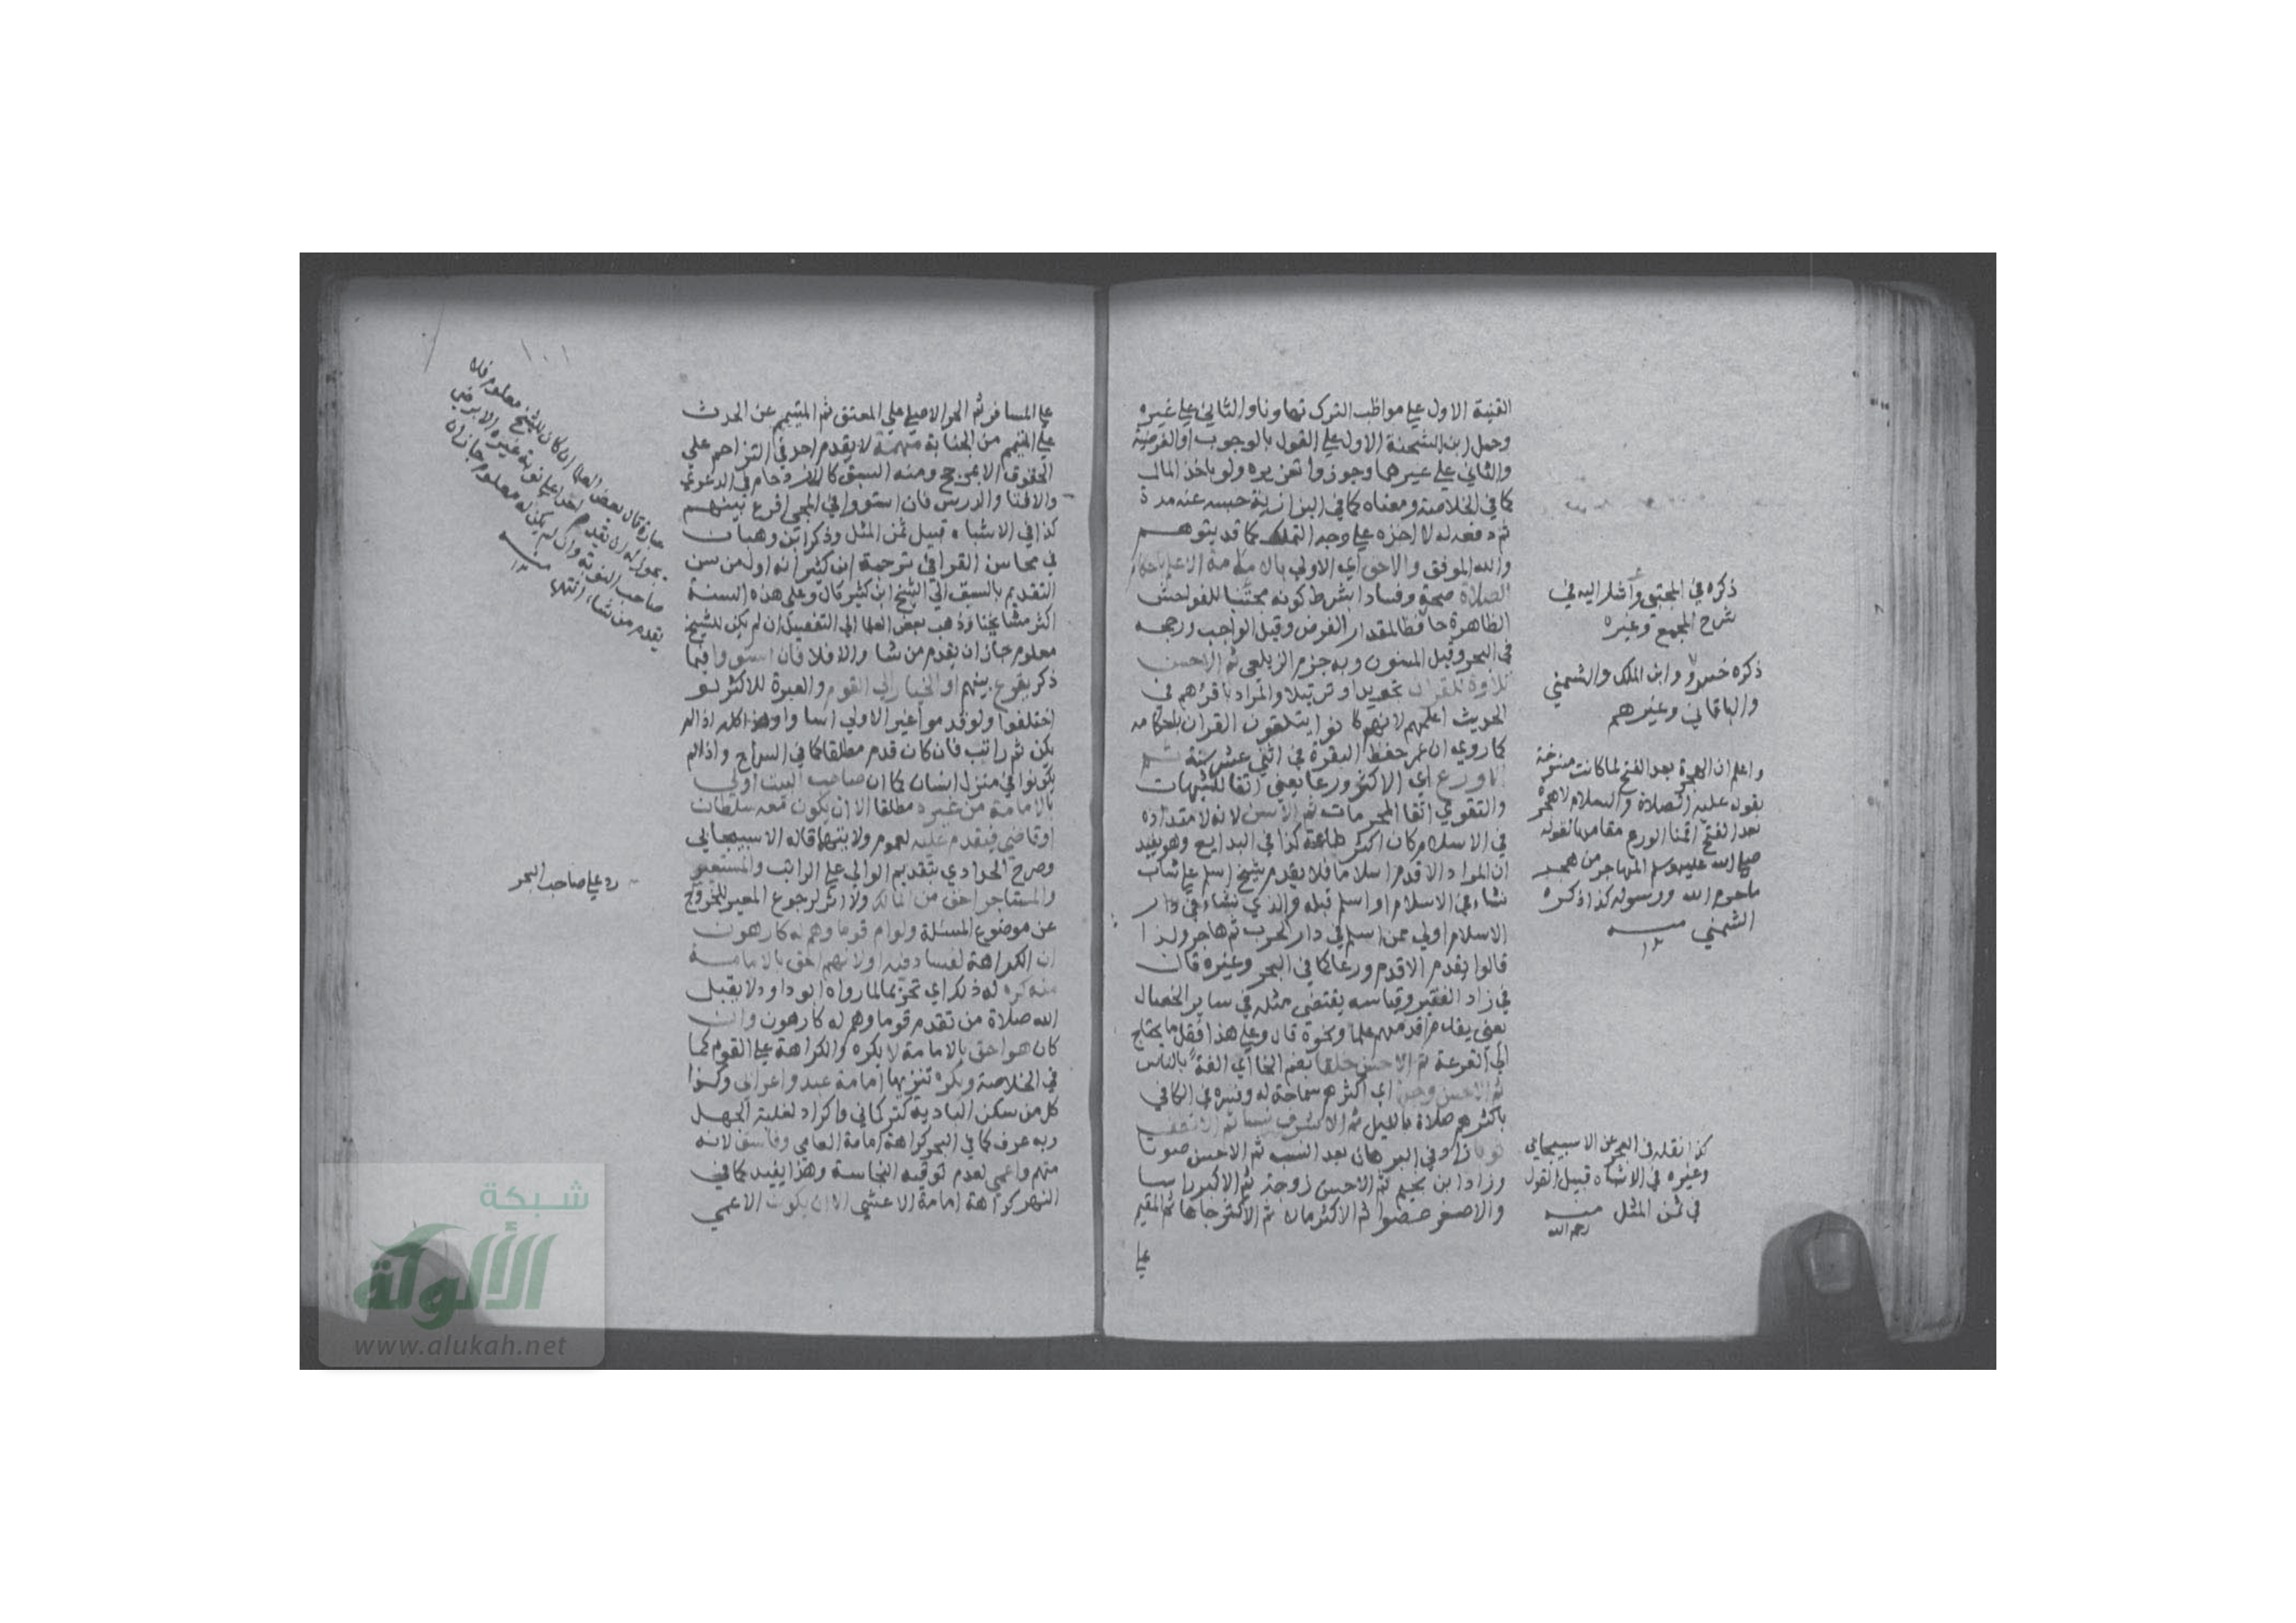 القنية الاول علي مواظب الترك تهاونا والثاني علي غيره
وحمل ابن الشحنة الاول علي القول بالوجوب او الفرضية
والثاني علي غيرهما وجوزوا تعزيره ولو باخذ المال
كما في الخلاصة ومعناه كما في البزازية حبسه عنه مدة
ثم دفعه له لا اخذه علي وجه التملك كما قد يتوهم
والله الموفق والاحق اي الاولي بالامامة الاعلم باحكام
الصلاة صحة وفسادا بشرط كونه مجتنبا للفواحش
الظاهرة حافظا لمقدار الفرض وقيل الواجب ورجحه
في البحر وقيل المسنون وبه جزم الزيلعي ثم الاحسن
تلاوة للقران تجويدا وترتيلا والمراد باقرئهم في
الحديث اعلمهم لانهم كانوا يتلقون القران باحكامه
كما روي ان عمر حفظ البقرة في اثني عشر سنة ثم
الاورع اي الاكثر ورعا يعني اتقا للشبهات
والتقوي اتقا المحرمات ثم الاسن لانه لامتداده
في الاسلام كان اكثر طاعة كذا في البدايع وهو يفيد
ان المراد الاقدم اسلاما فلا يقدم شيخ اسلم علي شاب
نشاء في الاسلام او اسلم قبله والذي نشاء في دار
الاسلام اولي ممن اسلم في دار الحرب ثم هاجر ولذا
قالوا يقدم الاقدم ورعا كما في البحر وغيره قال
في زاد الفقير وقياسه يقتضي مثله في ساير الخصال
يعني يقدم اقدمهم علما ونحوه قال وعلي هذا فقل ما يحتاج
الي القرعة ثم الاحسن خلقا بضم الخا اي الفة بالناس
ثم الاحسن وجها اي اكثرهم سماحة له وفسره في الكافي
باكثرهم صلاة بالليل ثم الاشرف نسبا ثم الانظف
ثوبا زاد في البرهان بعد النسب ثم الاحسن صوتا
وزاد ابن نجيم ثم الاحسن زوجة ثم الاكبر راسا
والاصغر عضوا ثم الاكثر مالا ثم الاكثر جاها ثم المقيم
علي
ذكره في المجتبي واشار اليه في
شرح المجمع وغيره
ذكره خسرو وابن الملك والشمني
والباقاني وغيرهم
واعلم ان الهجرة بعد الفتح لما كانت منسوخة
بقوله عليه الصلاة والسلام لا هجرة
بعد الفتح اقمنا الورع مقامها لقوله
صلي الله عليه وسلم المهاجر من هجر
ما حرم الله ورسوله كذا ذكره
الشمني منه
١٢
كذا نقله في البحر عن الاسبيجابي
وغيره في الاشباه قبيل القول
في ثمن المثل منه
رحمه الله
١٠١
علي المسافر ثم الحر الاصلي علي المعتق ثم المتيمم عن الحدث
علي المتيمم من الجنابة تتمة لا يقدم احد في التزاحم علي
الحقوق الا بمرجح ومنه السبق كالازدحام في الدعوي
والافتا والدرس فان استووا في المجي اقرع بينهم
كذا في الاشباه قبيل ثمن المثل وذكر ابن وهبان
في محاسن القرا في ترجمة ابن كثير انه اول من سن
التقديم بالسبق الي الشيخ ابن كثير قال وعلي هذه السنة
اكثر مشايخنا وذهب بعض العلما الي التفصيل ان لم يكن للشيخ
معلوم جاز ان يقدم من شا والا فلا فان استووا فيما
ذكر يقرع بينهم او الخيار الي القوم والعبرة للاكثر لو
اختلفوا ولو قدموا غير الاولي اساوا وهذا كله اذا لم
يكن ثم راتب فان كان قدم مطلقا كما في السراج واذا لم
يكونوا في منزل انسان كما ان صاحب البيت اولي
بالامامة من غيره مطلقا الا ان يكون معه سلطان
او قاضي فيقدم عليه لعموم ولايتهما قاله الاسبيجابي
وصرح الحدادي بتقديم الوالي علي الراتب والمستعير
والمستاجر احق من المالك ولا اثر لرجوع المعير للخروج
عن موضوع المسئلة ولو ام قوما وهم له كارهون
ان الكراهة لفساد فيه او لانهم احق بالامامة
منه كره له ذلك اي تحريما لما رواه ابو داود لا يقبل
الله صلاة من تقدم قوما وهم له كارهون وان
كان هو احق بالامامة لا يكره والكراهة علي القوم كما
في الخلاصة ويكره تنزيها امامة عبد واعرابي وكذا
كل من سكن البادية كتركماني واكراد لغلبة الجهل
وبه عرف كما في البحر كراهة امامة العامي وفاسق لانه
متهم واعمي لعدم توقيه النجاسة وهذا يفيد كما في
النهر كراهة امامة الاعشي الا ان يكون الاعمي
عبارة قال بعض العلما ان كان للشيخ معلوم فلا
يجوز له ان يقدم احدا علي نوبة غيره الا برضي
صاحب النوبة وان لم يكن له معلوم جاز ان
يقدم من شاء انتهي منه
١٢
رد علي صاحب البحر
شبكة
الألوكة
www.alukah.net